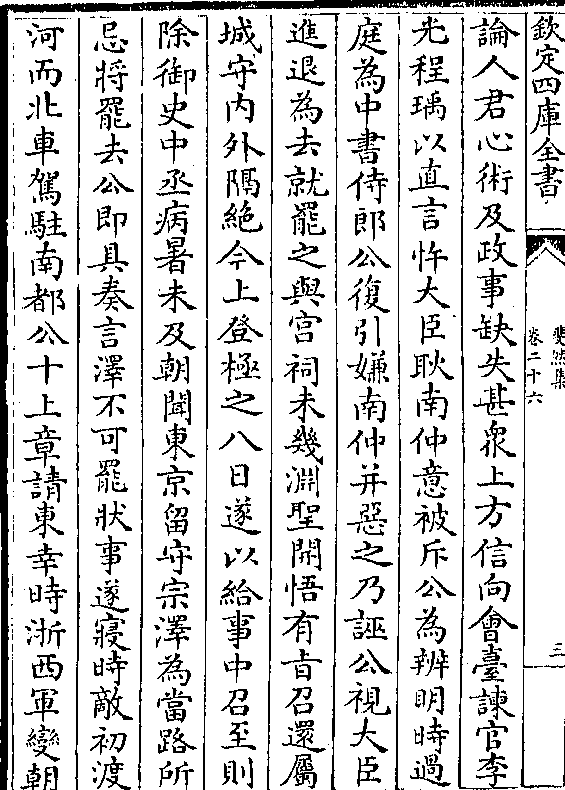 欽定四庫全書
斐然集
卷二十六
三
論人君心術及政事缺失甚衆上方信向會臺諫官李
光程瑀以直言忤大臣耿南仲意被斥公為辨明時過
庭為中書侍郎公復引嫌南仲并惡之乃誣公視大臣
進退為去就罷之與宫祠未幾淵聖開悟有㫖召還屬
城守内外隔絶今上登極之八日遂以給事中召至則
除御史中丞病暑未及朝聞東京留守宗澤為當路所
忌將罷去公即具奏言澤不可罷狀事遂寢時敵初渡
河而北車駕駐南都公十上章請東幸時浙西軍變朝